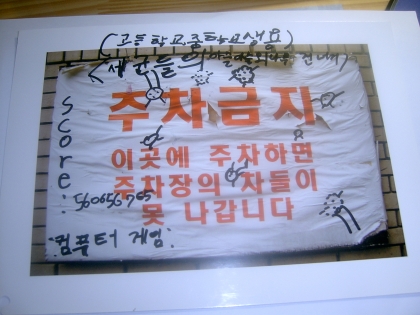 (고등학교중학교생용)
<세균들의
주차금지
이곳에 주차하면
주차장의 차들이
못 나갑니다
Score:
560656765
:컴퓨터 게임: